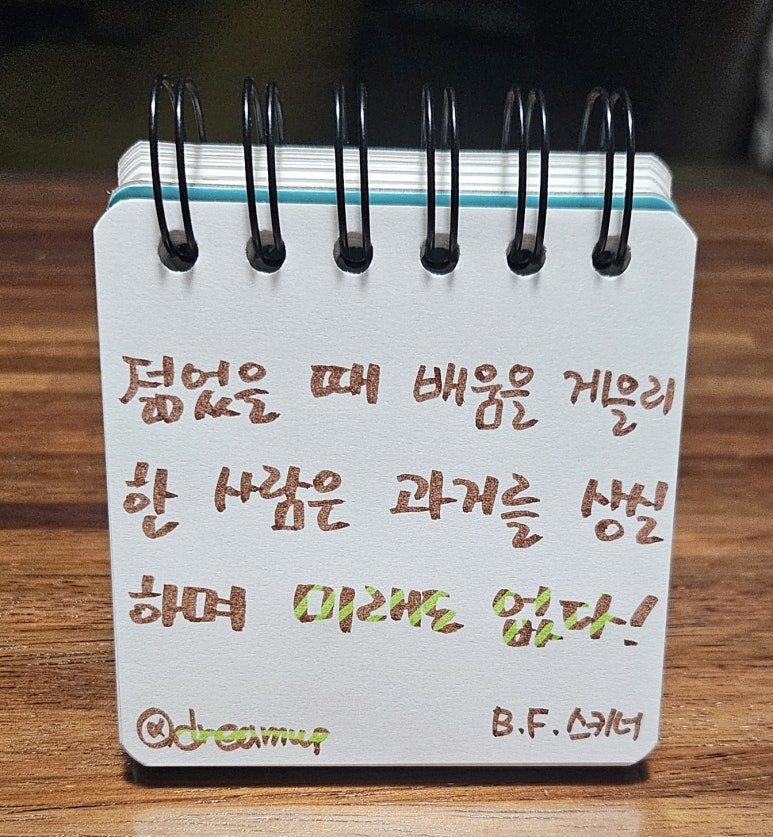 젊었을 때 배움을 게을리
한 사람은 과거를 상실
하며 미래도 없다!
@dreamup B.F. 스키너